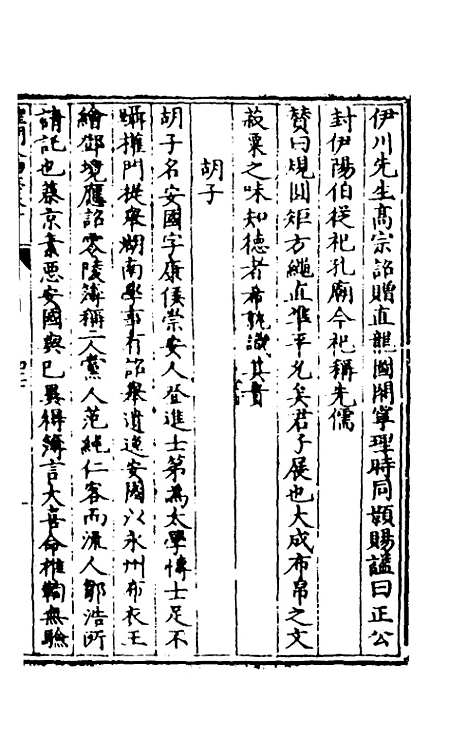 伊川先生高宗詔贈直龍圖閣寧理時同顥賜謚曰正公
封伊陽伯從祀孔廟今祀稱先儒
贊曰規圓矩方繩直準平允矣君子展也大成布帛之文
菽粟之味知德者希孰識其貴
胡子
胡子名安國字康侯崇安人登進士第為太學博士足不
躡權門提舉湖南學事有詔舉遺逸安國以永州布衣王
繪鄧境應詔零陵簿稱二人黨人范純仁客而流人鄒浩所
請託也蔡京素惡安國與巳異得簿言大喜命推鞫無驗